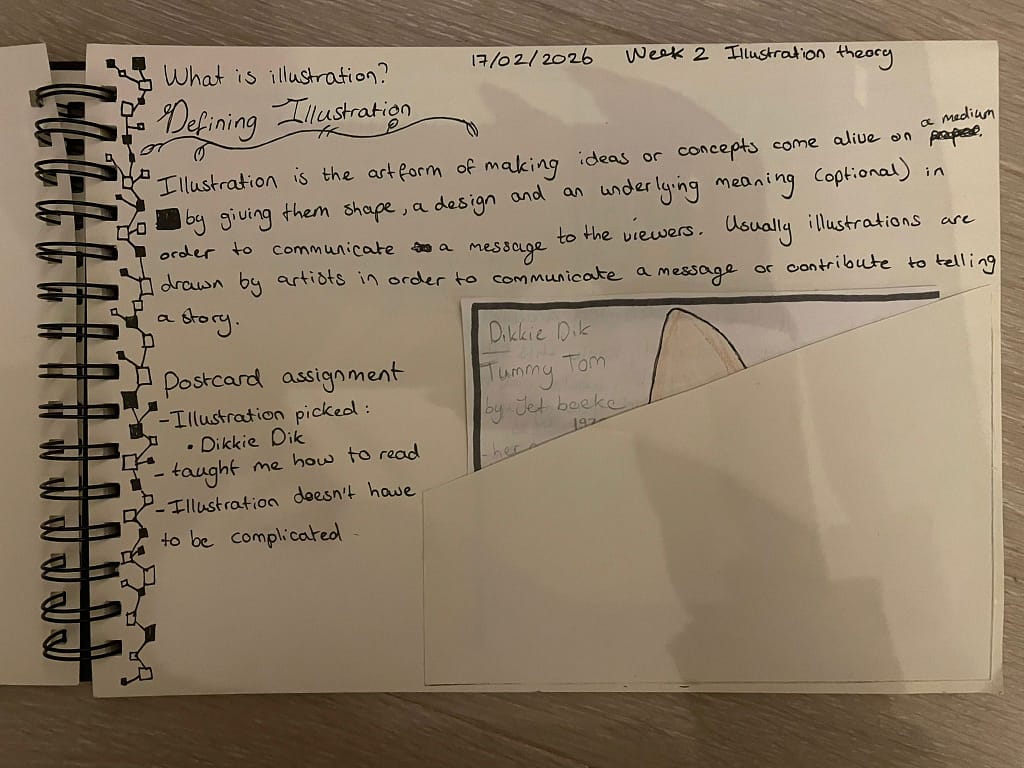 17/02/2026 Week 2 Illustration theory
What is illustration?
Defining Illustration
Illustration is the artform of making ideas or concepts come alive on a medium
by giving them shape, a design and an underlying meaning (optional) in
order to communicate a message to the viewers. Usually illustrations are
drawn by artists in order to communicate a message or contribute to telling
a story.
Postcard assignment
- Illustration picked:
• Dikkie Dik
- taught me how to read
- Illustration doesn't have
to be complicated
Dikkie Dik
Tummy Tom
by Jet boeke
197
- her